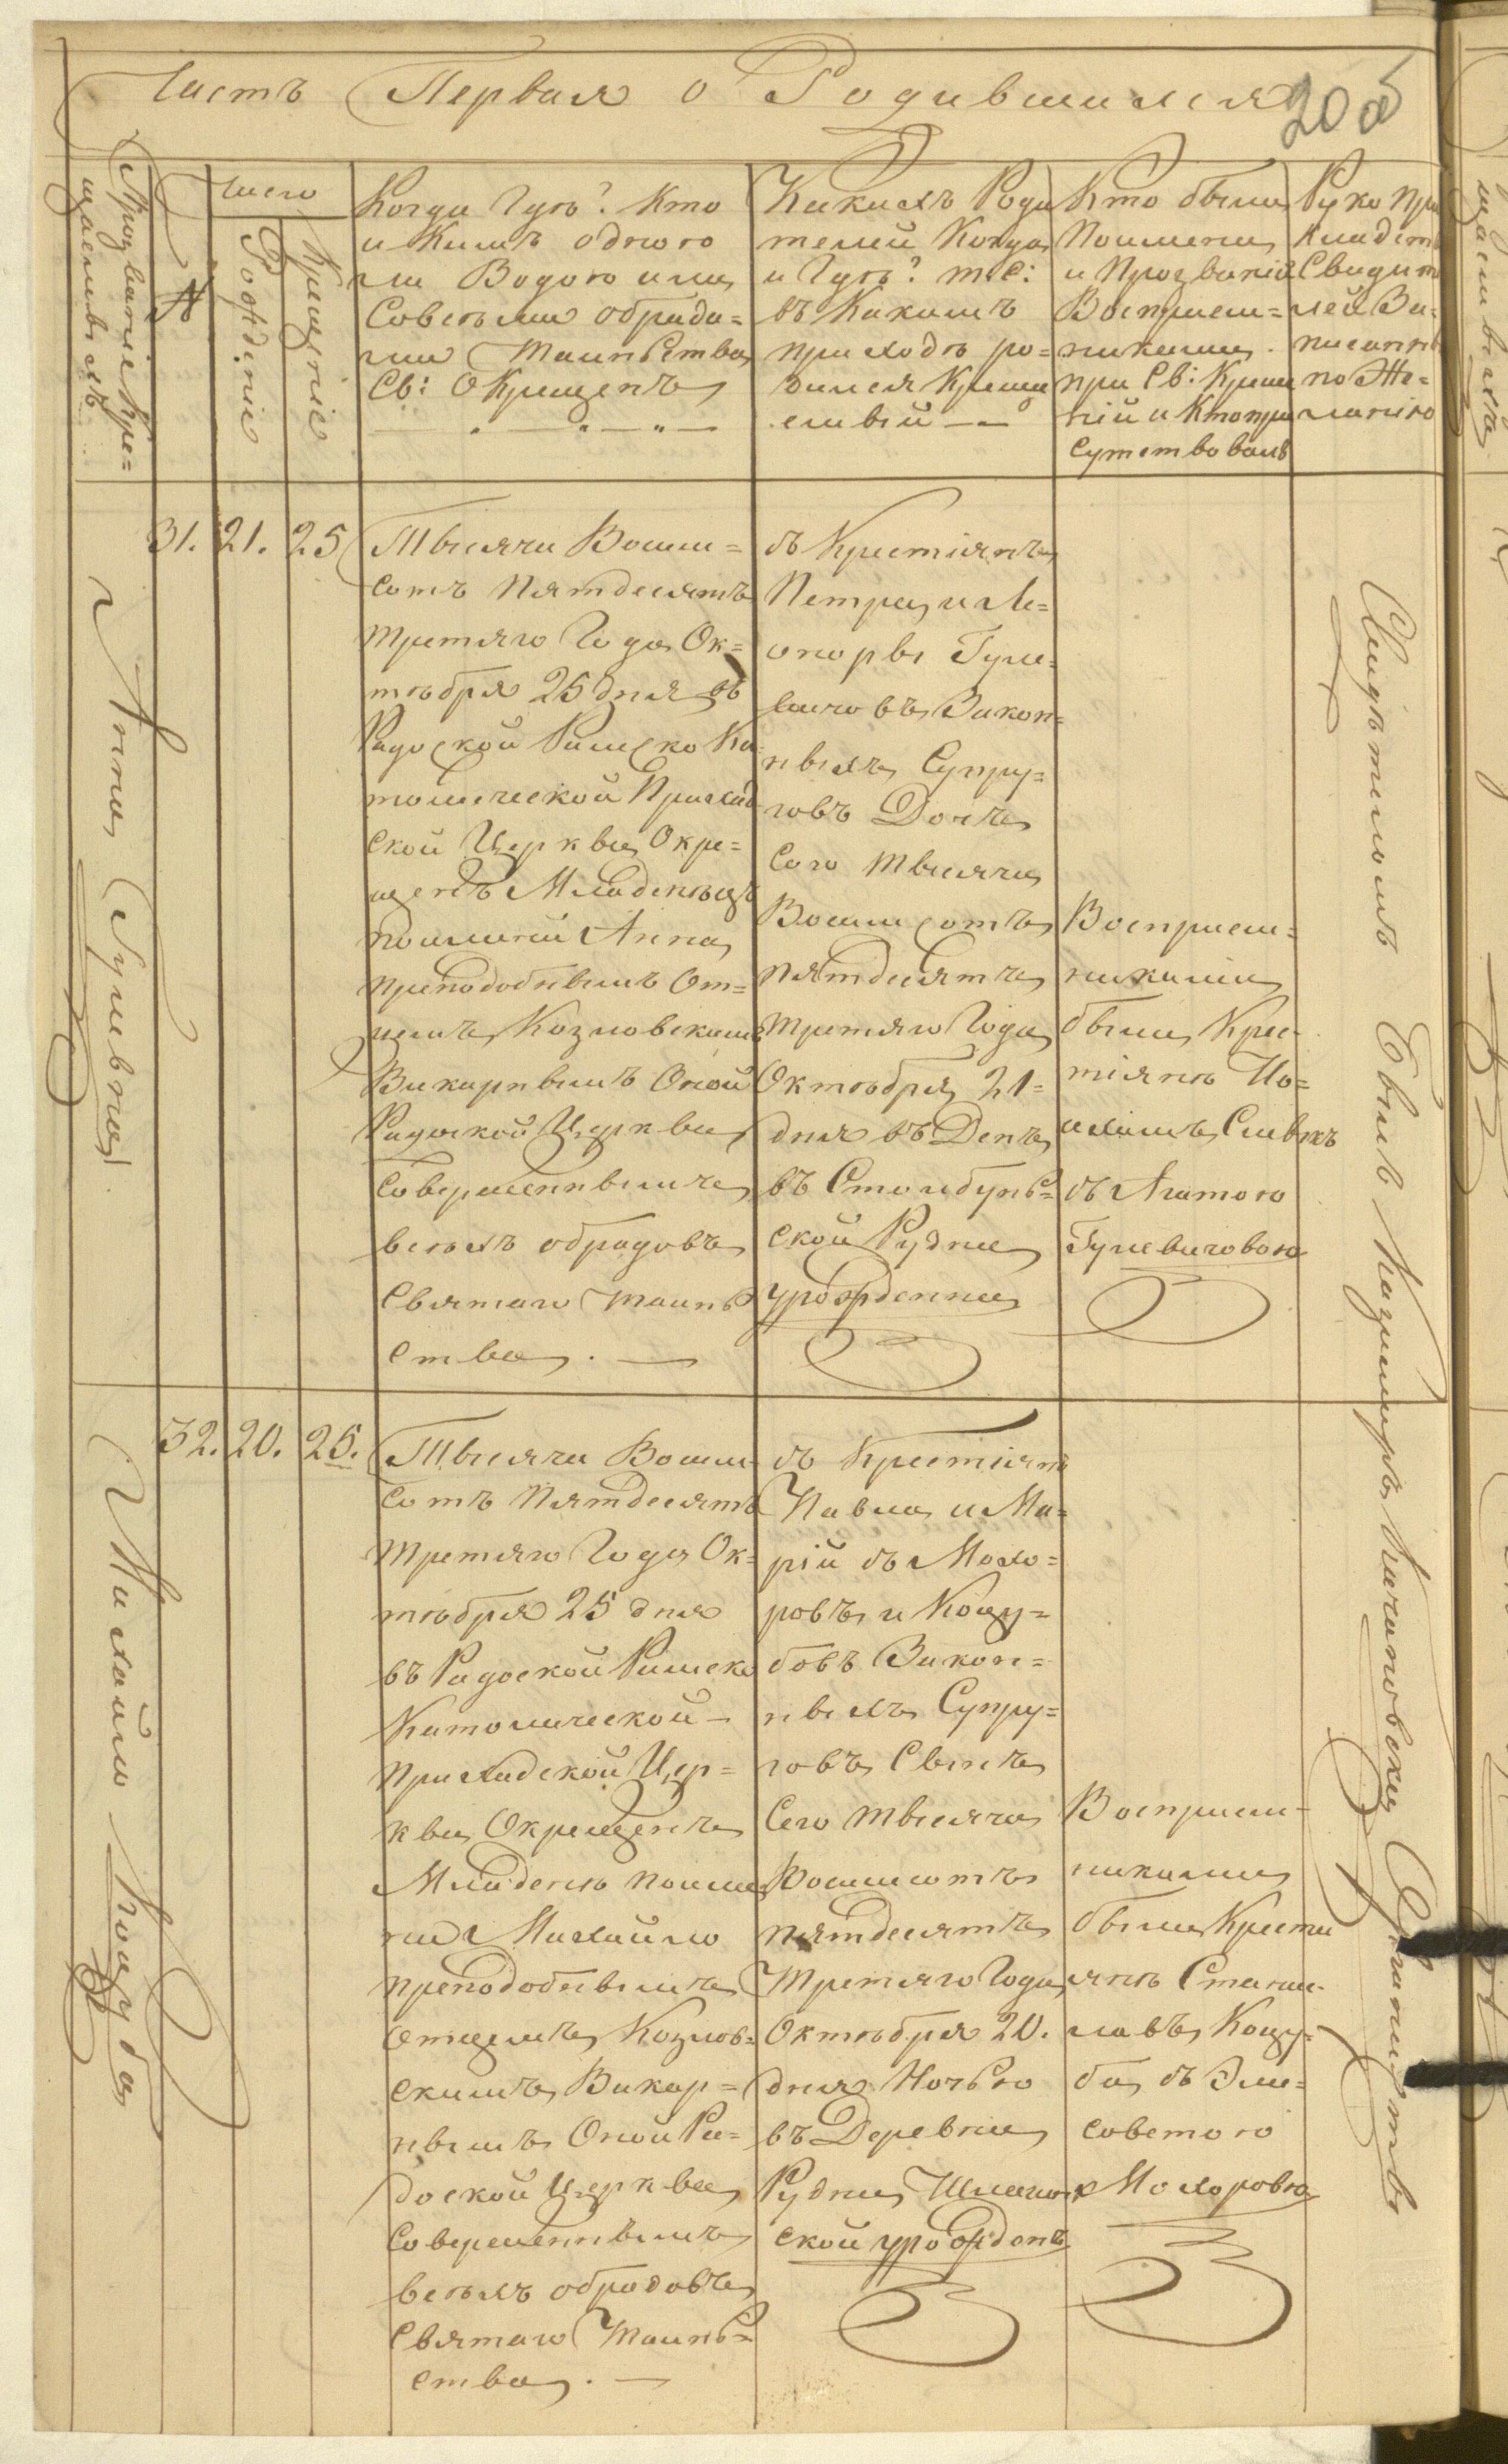 Часть Первая о Родившихся
20 об
Прозваніе Кре=
щаемыхъ
№
Число
Рожденіе
Крещеніе
Когда Гдѣ? Кто
и Кимъ одною
ли Водою или
Совсѣми обряда=
ми Таинства
Св: Окрещенъ
Какихъ Роди
телей Когда
и Гдѣ? т:е:
въ Какомъ
приходѣ ро=
дился Креща
емый
Кто были
Поимени
и Прозванію
Воспріем=
никами
при Св: Креще
ній и Кто при
сутствовалъ
Руко при
кладст
Свидѣт
лей За=
писанн
по Же=
ланію
Анна Гулевна
31.
21.
25
Тысяча Восми=
сотъ Пятдесятъ
третяго Года Ок=
тоября 25 дня въ
Радоской Римско Ка
толической Приход
ской Церквы Окре=
щенъ Младенецъ
поимени Анна
преподобнымъ От=
цемъ Козловскимъ
Викарнымъ Оной
Радоской Церквы
Совершеннымъ
всѣхъ обрядовъ
Святаго Таинъ
ства.
съ Крестіянъ
Петра и Ле=
оноры Гуле=
вичовъ Закон=
ныхъ Супру=
говъ Дочъ
Сего тысяча
Восми сотъ
пятдесятъ
третяго Года
Октоября 21=
дня въ День
въ Столбунъ=
ской Рудни
урожденна
Воспріем=
никами
были Крес=
тіянъ Іо=
ахимъ Сивикъ
съ Агатою
Гулевичовою
Михайло Коцуба
32.
20.
25.
Тысяча Восми
сотъ Пятдесятъ
третяго Года Ок=
тоября 25 дня
въ Радоской Римско
Католической
Приходской Цер=
квы Окрещенъ
Младенъ поиме
ни Михайло
преподобнымъ
отцемъ Козлов=
скимъ Викар=
нымъ Оной Ра=
доской Церквы
Совершеннымъ
всѣхъ обрядовъ
Святаго Таинъ=
ства.
съ Крестіянъ
Павла и Ма=
рій съ Мохо=
ровъ и Коцу=
бовъ Закон=
ныхъ Супру=
говъ Сынъ
Сего тысяча
Восмисотъ
пятдесятъ
третяго Года
Октоября 20.
дня Ночью
въ Деревни
Рудни
ской урожденъ
Воспріем=
никами
были Крести
янъ Станис
лавъ Коцу=
ба съ Эли=
саветою
Мохоровою
Свидѣтелемъ Былъ Казимиръ